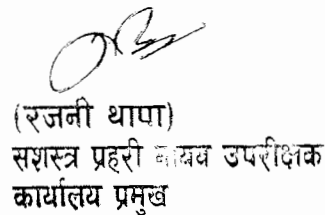 (रजनी थापा)
सशस्त्र प्रहरी नायव उपरीक्षक
कार्यालय प्रमुख